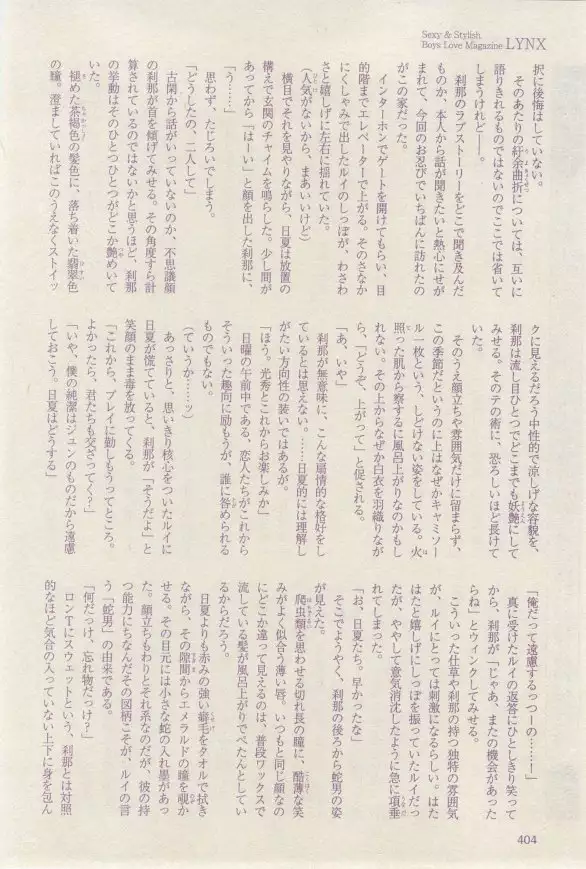 Sexy & Stylish
Boys Love Magazine LYNX
択に後悔はしていない。
そのあたりの紆余曲折については、互いに
語りきれるものではないのでここでは省いて
しまうけれど――。
刹那のラブストーリーをどこで聞き及んだ
ものか、本人から話が聞きたいと熱心にせが
まれて、今回のお忍びでいちばんに訪れたの
がこの家だった。
インターホンでゲートを開けてもらい、目
的階までエレベーターで上がる。そのさなか
にくしゃみで出したルイのしっぽが、わさわ
さと嬉しげに左右に揺れていた。
（人気がないから、まあいいけど）
横目でそれを見やりながら、日夏は放置の
構えで玄関のチャイムを鳴らした。少し間が
あってから「はーい」と顔を出した刹那に、
「う……」
思わず、たじろいでしまう。
「どうしたの、二人して」
古閑から話がいっていないのか、不思議顔
の刹那が首を傾げてみせる。その角度すら計
算されているのではないかと思うほど、刹那
の挙動はそのひとつひとつがどこか艶めいて
いた。
褪めた茶褐色の髪色に、落ち着いた翡翠色
の瞳。澄ましていればこのうえなくストイッ
クに見えるだろう中性的で涼しげな容貌を、
刹那は流し目ひとつでどこまでも妖艶にして
みせる。そのテの術に、恐ろしいほど長けて
いた。
そのうえ顔立ちや雰囲気だけに留まらず、
この季節だというのに上はなぜかキャミソー
ル一枚という、しどけない姿をしている。火
照った肌から察するに風呂上がりなのかもし
れない。その上からなぜか白衣を羽織りなが
ら、「どうぞ、上がって」と促される。
「あ、いや」
刹那が無意味に、こんな扇情的な格好をし
ているとは思えない。……日夏的には理解し
がたい方向性の装いではあるが。
「ほう。光秀とこれからお楽しみか」
日曜の午前中である、恋人たちがこれから
そういった趣向に励もうが、誰に咎められる
ものでもない。
（ていうか……ッ）
あっさりと、思いきり核心をついたルイに
日夏が慌てていると、刹那が「そうだよ」と
笑顔のまま毒を放ってくる。
「これから、プレイに勤しもうってところ。
よかったら、君たちも交ざってく？」
「いや、僕の純潔はジュンのものだから遠慮
しておこう。日夏はどうする」
「俺だって遠慮するっつーの………！」
真に受けたルイの返答にひとしきり笑って
から、刹那が「じゃあ、またの機会があった
らね」とウィンクしてみせる。
こういった仕草や刹那の持つ独特の雰囲気
が、ルイにとっては刺激になるらしい。はた
はたと嬉しげにしっぽを振っていたルイだっ
たが、ややして意気消沈したように急に項垂
れてしまった。
「お、日夏たち。早かったな」
そこでようやく、刹那の後ろから蛇男の姿
が見えた。
爬虫類を思わせる切れ長の瞳に、酷薄な笑
みがよく似合う薄い唇。いつもと同じ顔なの
にどこか違って見えるのは、普段ワックスで
流している髪が風呂上がりでぺたんとしてい
るからだろう。
日夏よりも赤みの強い癖毛をタオルで拭き
ながら、その隙間からエメラルドの瞳を覗か
せる。その目元には小さな蛇の入れ墨があっ
た。顔立ちもわりとそれ系なのだが、彼の持
つ能力にちなんだその図柄こそが、ルイの言
う「蛇男」の由来である。
「何だっけ、忘れ物だっけ？」
ロンTにスウェットという、刹那とは対照
的なほど気合の入っていない上下に身を包ん
404